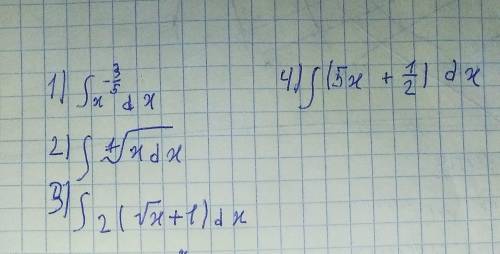 1) ∫x^{-3/5} dx
4) ∫(5x + 1/2) dx
2) ∫ ∜(x dx)
3) ∫ 2(√x+1) dx